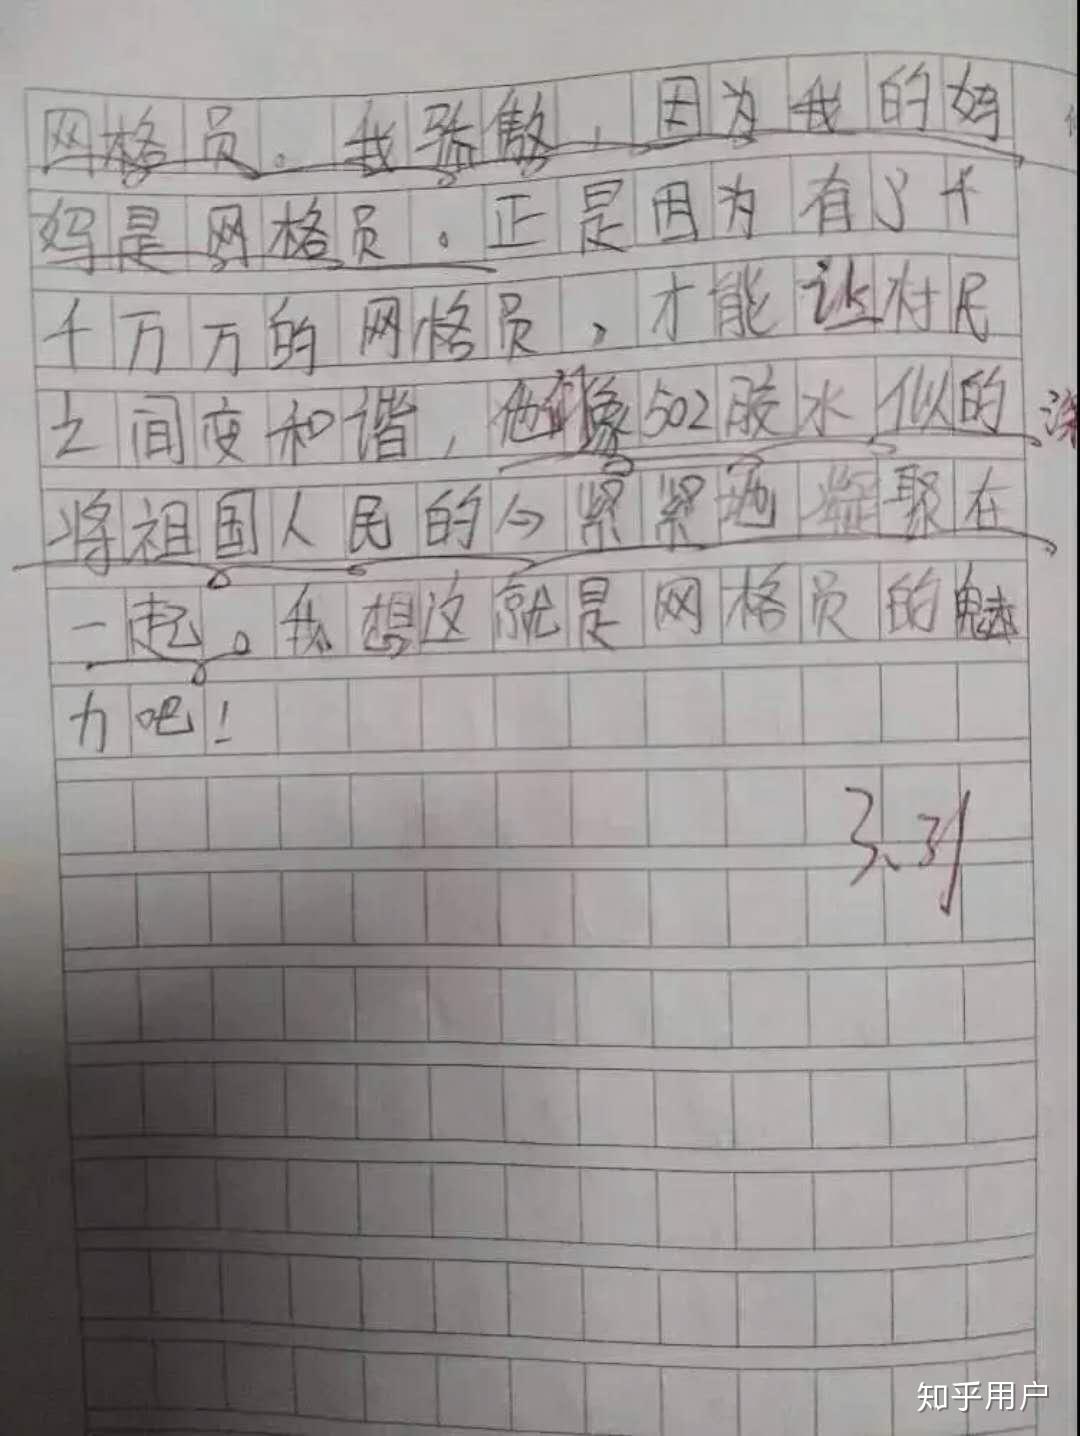 网格员。我骄傲，因为我的妈
妈是网格员。正是因为有了千
千万万的网格员，才能让村民
之间变和谐，他们象502胶水似的
将祖国人民的心紧紧地凝聚在
一起。我想这就是网格员的魅
力吧！
3.31
知乎用户